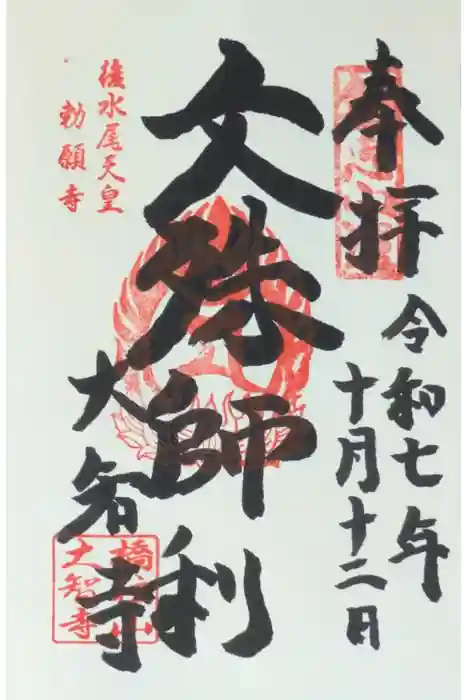 奉拝
令和七年
十月十二日
文殊師利
大智寺
後水尾天皇
勅願寺
大智寺